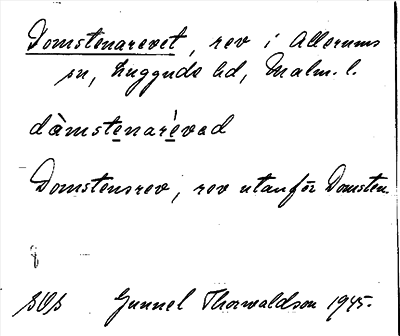 Domstenarevet, rev i Allerums
sn, Luggude hd, Malm. l.
dàmstenarèvad
Domstensrev, rev utanför Domsten.
SOS Gunnel Thorwaldson 1945.